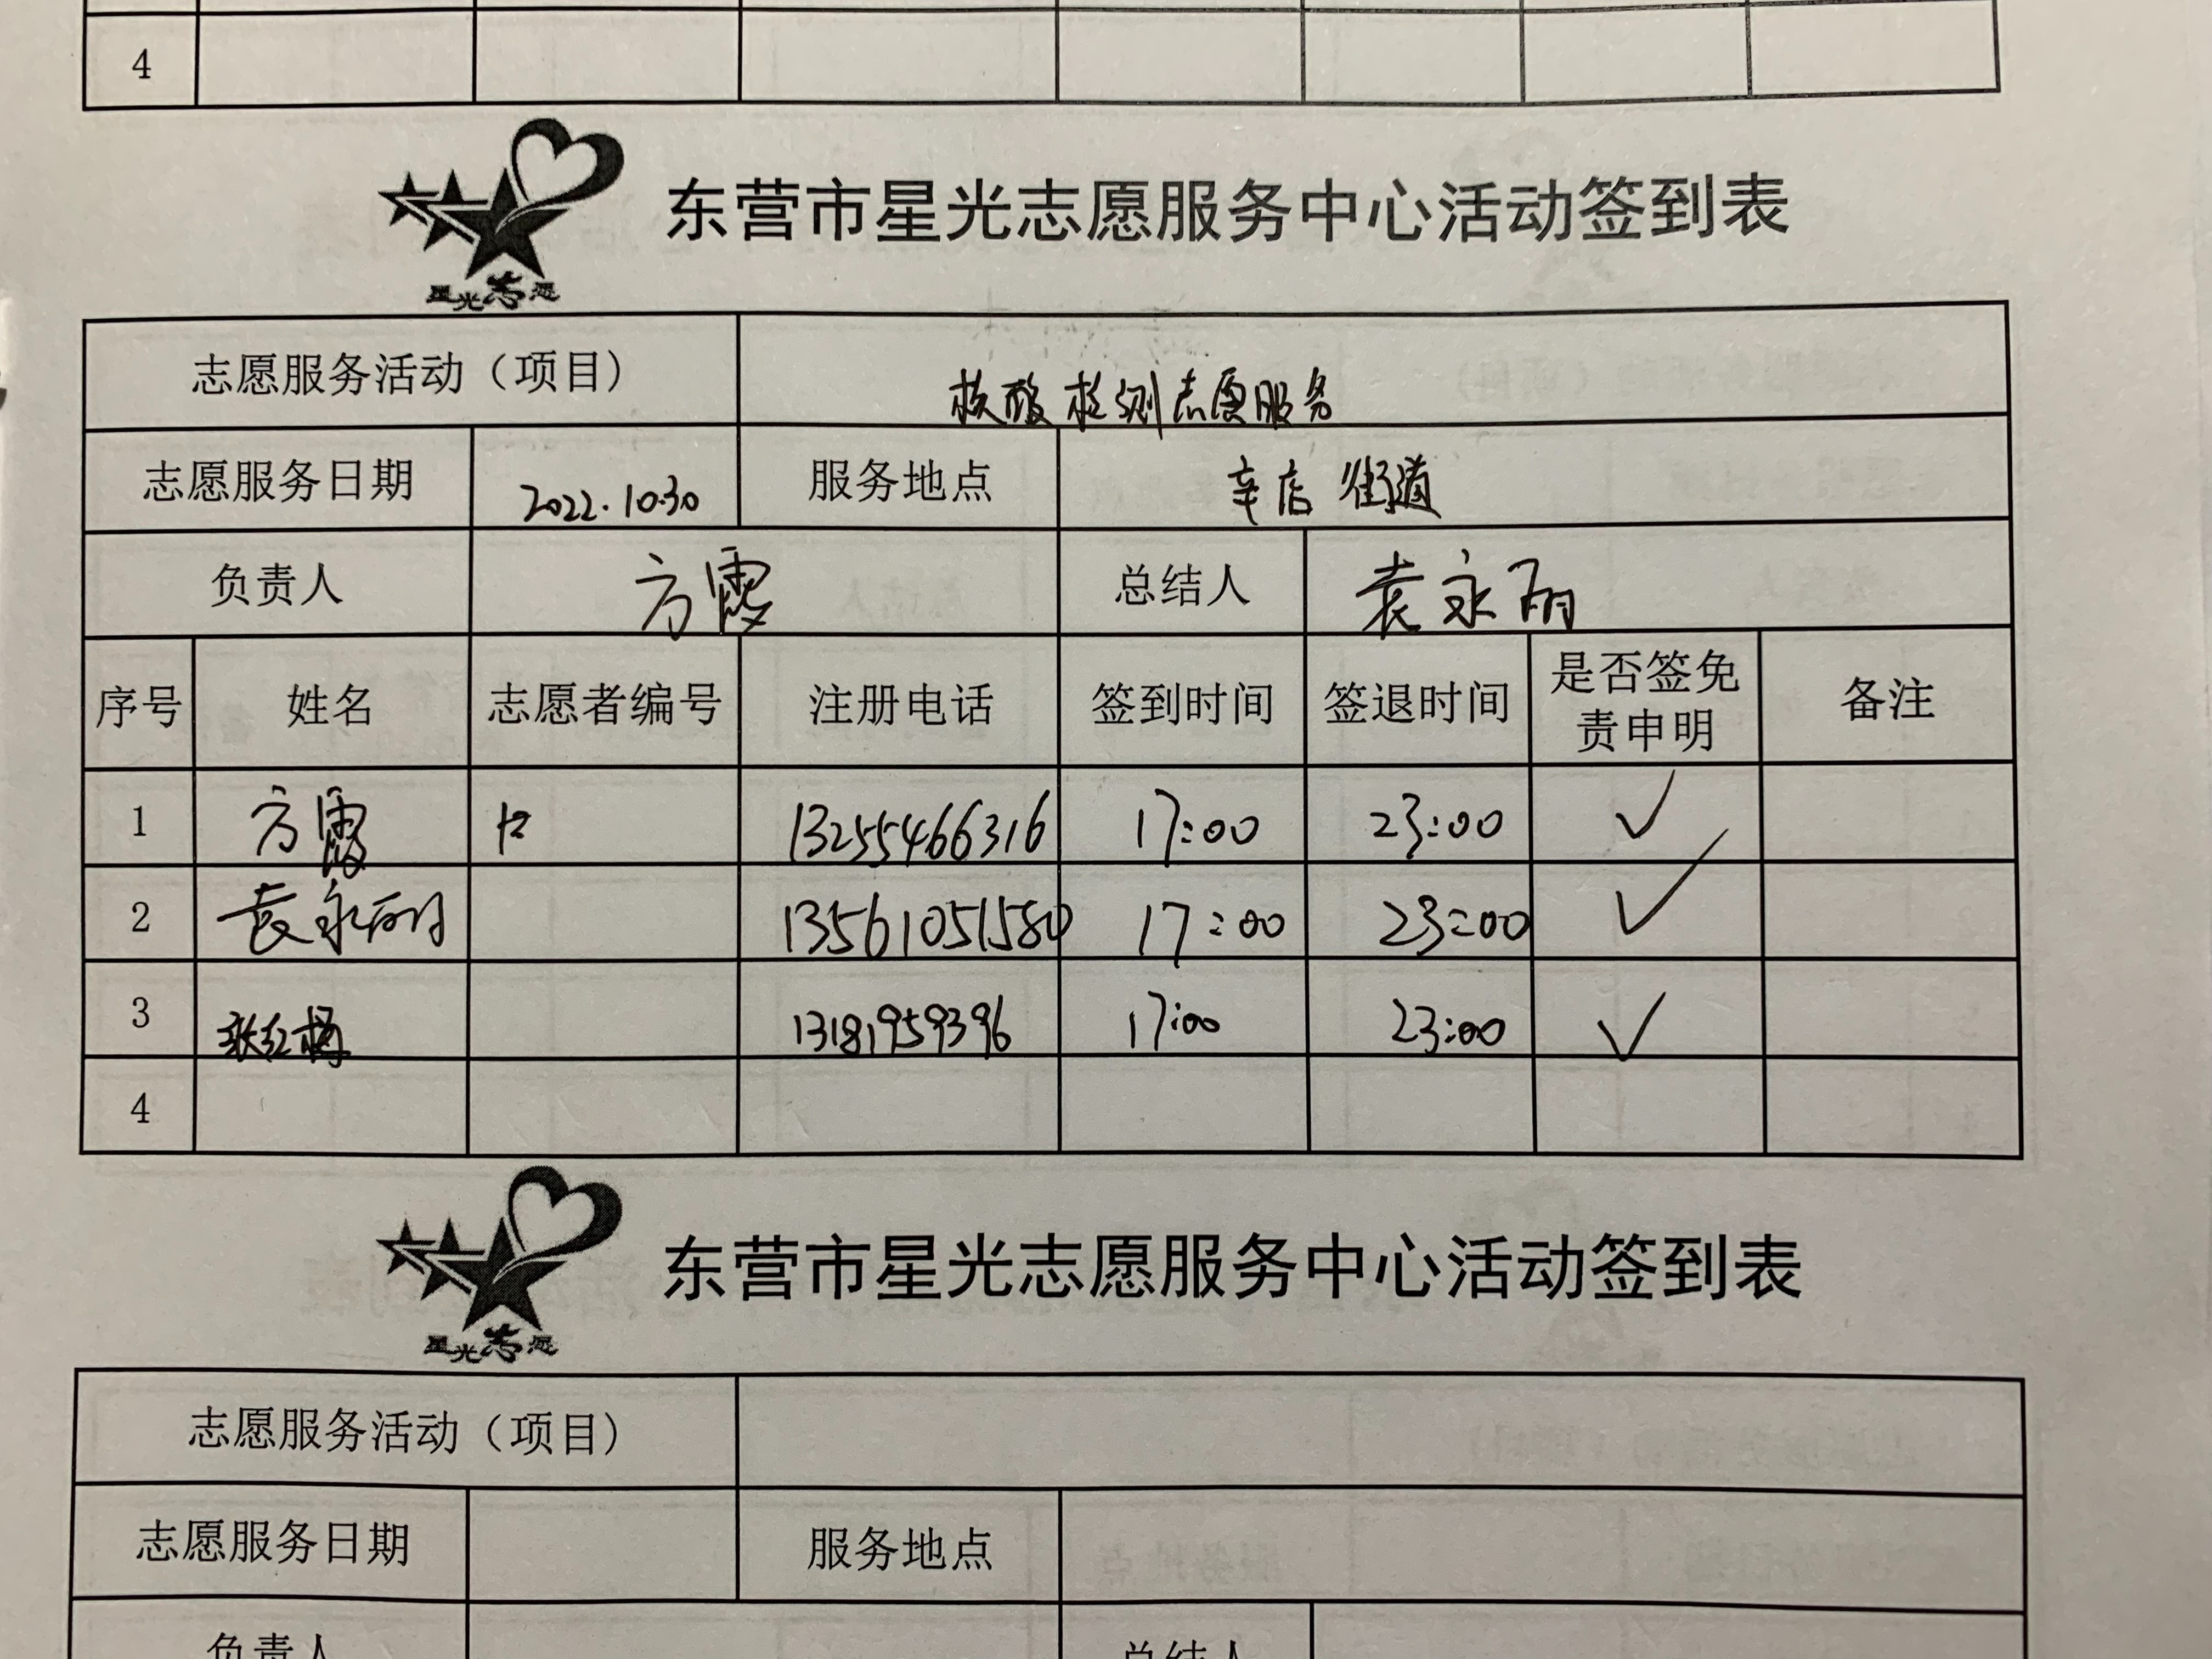 4
星光志愿
东营市星光志愿服务中心活动签到表
志愿服务活动（项目） 核酸检测志愿服务
志愿服务日期 2022.10.30 服务地点 辛店街道
负责人 方霞 总结人 袁永丽
序号 姓名 志愿者编号 注册电话 签到时间 签退时间 是否签免责申明 备注
1 方霞 13255466316 17:00 23:00 ✓
2 袁永丽 13561051580 17:00 23:00 ✓
3 张红梅 13181959396 17:00 23:00 ✓
4
星光志愿
东营市星光志愿服务中心活动签到表
志愿服务活动（项目）
志愿服务日期 服务地点
负责人 总结人